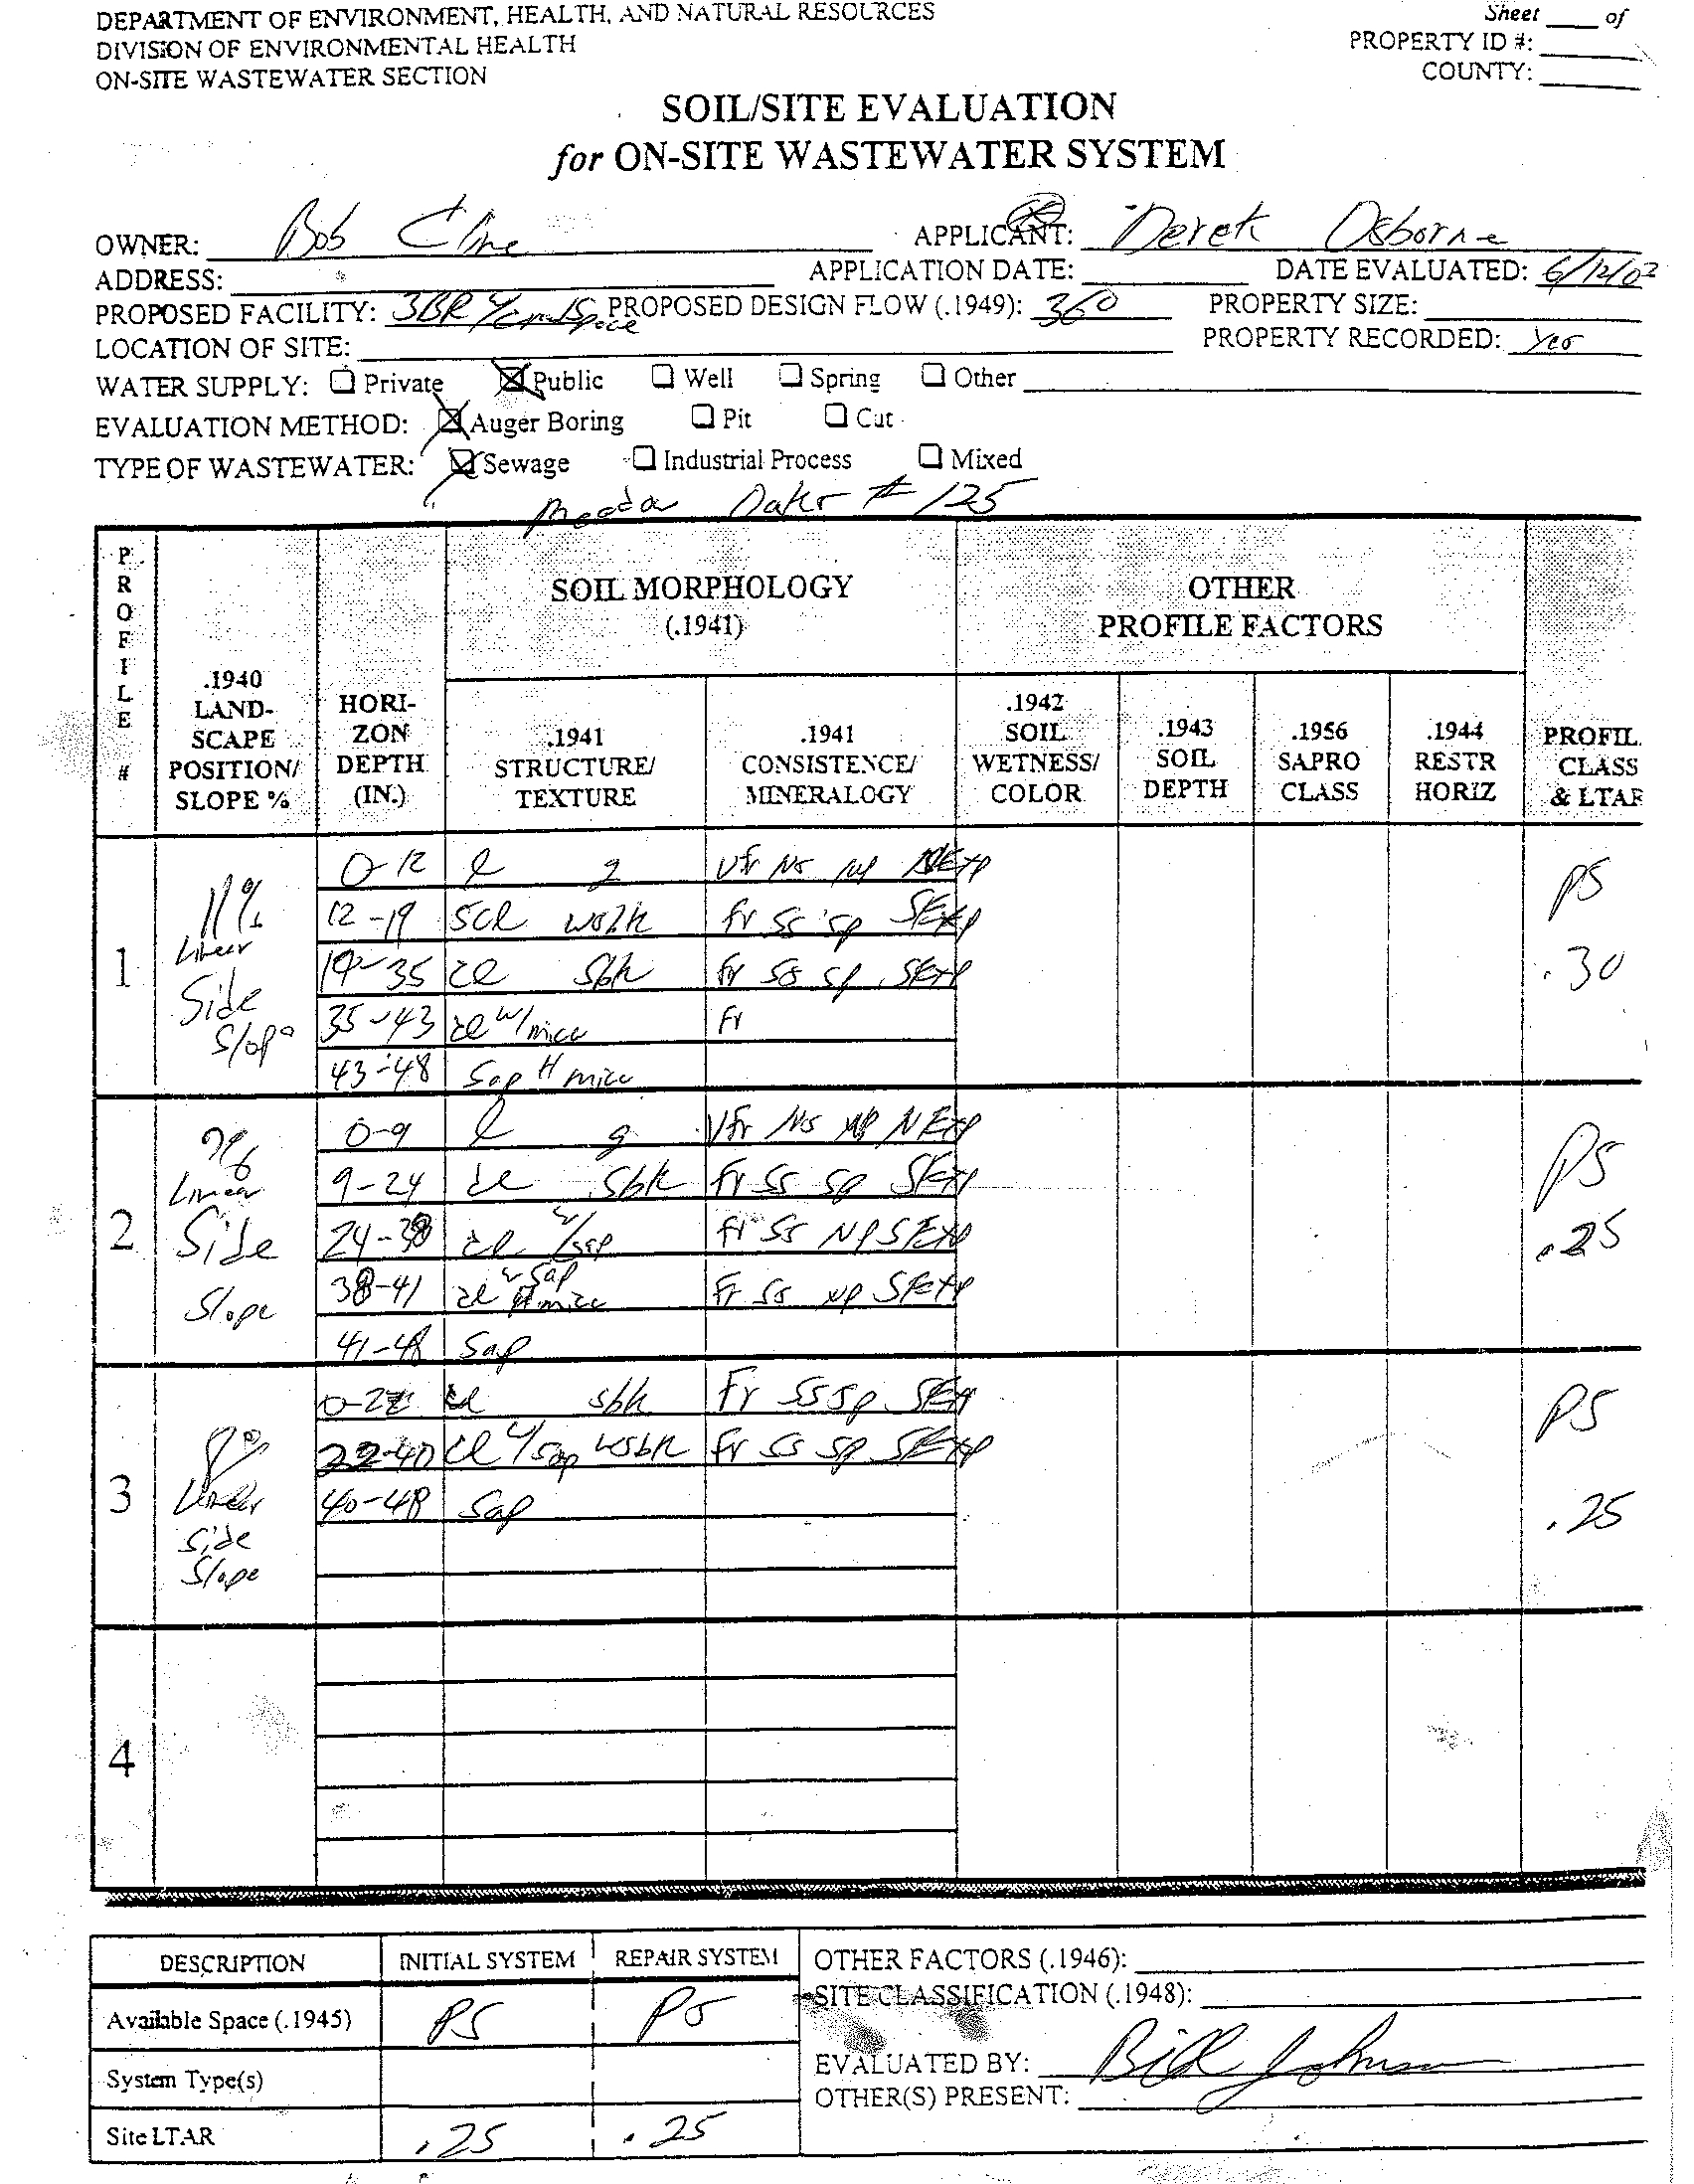 DEPARTMENT OF ENVIRONMENT, HEALTH, AND NATURAL RESOURCES
DIVISION OF ENVIRONMENTAL HEALTH
ON-SITE WASTEWATER SECTION
Sheet ____ of
PROPERTY ID #:
COUNTY:
SOIL/SITE EVALUATION
for ON-SITE WASTEWATER SYSTEM
OWNER: Bob Cline APPLICANT: Derek Osborne
ADDRESS: APPLICATION DATE: DATE EVALUATED: 6/12/02
PROPOSED FACILITY: 3BR w/crawlspace PROPOSED DESIGN FLOW (.1949): 360 PROPERTY SIZE:
LOCATION OF SITE: PROPERTY RECORDED: yes
WATER SUPPLY: Private Public Well Spring Other
EVALUATION METHOD: Auger Boring Pit Cut
TYPE OF WASTEWATER: Sewage Industrial Process Mixed
# 125
PROFILE #
.1940 LAND-SCAPE POSITION/ SLOPE %
HORI-ZON DEPTH (IN.)
SOIL MORPHOLOGY (.1941)
.1941 STRUCTURE/ TEXTURE
.1941 CONSISTENCE/ MINERALOGY
OTHER PROFILE FACTORS
.1942 SOIL WETNESS/ COLOR
.1943 SOIL DEPTH
.1956 SAPRO CLASS
.1944 RESTR HORIZ
PROFIL. CLASS & LTAR
1 11% Linear Side Slope
0-12 l g vfr NS NP NEXP
12-19 SCL wsbk fr SS SP SEXP
19-35 cl sbk fr SS SP SEXP
35-43 cl w/mica Fr
43-48 Sap H mica
PS .30
2 Linear Side Slope
0-9 l g Vfr NS NP NEXP
9-24 cl sbk fr SS SP SEXP
24-38 cl w/sap fr SS NP SEXP
38-41 cl w Sap mica Fr SS NP SEXP
41-48 Sap
PS .25
3 Linear Side Slope
0-22 cl sbk Fr SS SP SEXP
22-40 cl w/sap wsbk fr SS SP SEXP
40-48 Sap
PS .25
4
DESCRIPTION INITIAL SYSTEM REPAIR SYSTEM
Available Space (.1945) PS PS
System Type(s)
Site LTAR .25 .25
OTHER FACTORS (.1946):
SITE CLASSIFICATION (.1948):
EVALUATED BY: Bill Johnson
OTHER(S) PRESENT: